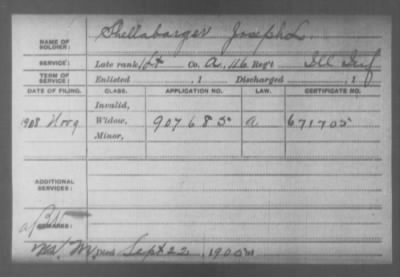 NAME OF SOLDIER: Shellabarger Joseph L.
SERVICE: Late rank 1 Lt Co. A, 116 Reg't Ill Inf
TERM OF SERVICE: Enlisted , 1 Discharged , 1
DATE OF FILING. CLASS. APPLICATION NO. LAW. CERTIFICATE NO.
Invalid,
1908 Widow, 907685 a 671705
Minor,
ADDITIONAL SERVICES:
REMARKS:
Died Sept 22, 1905